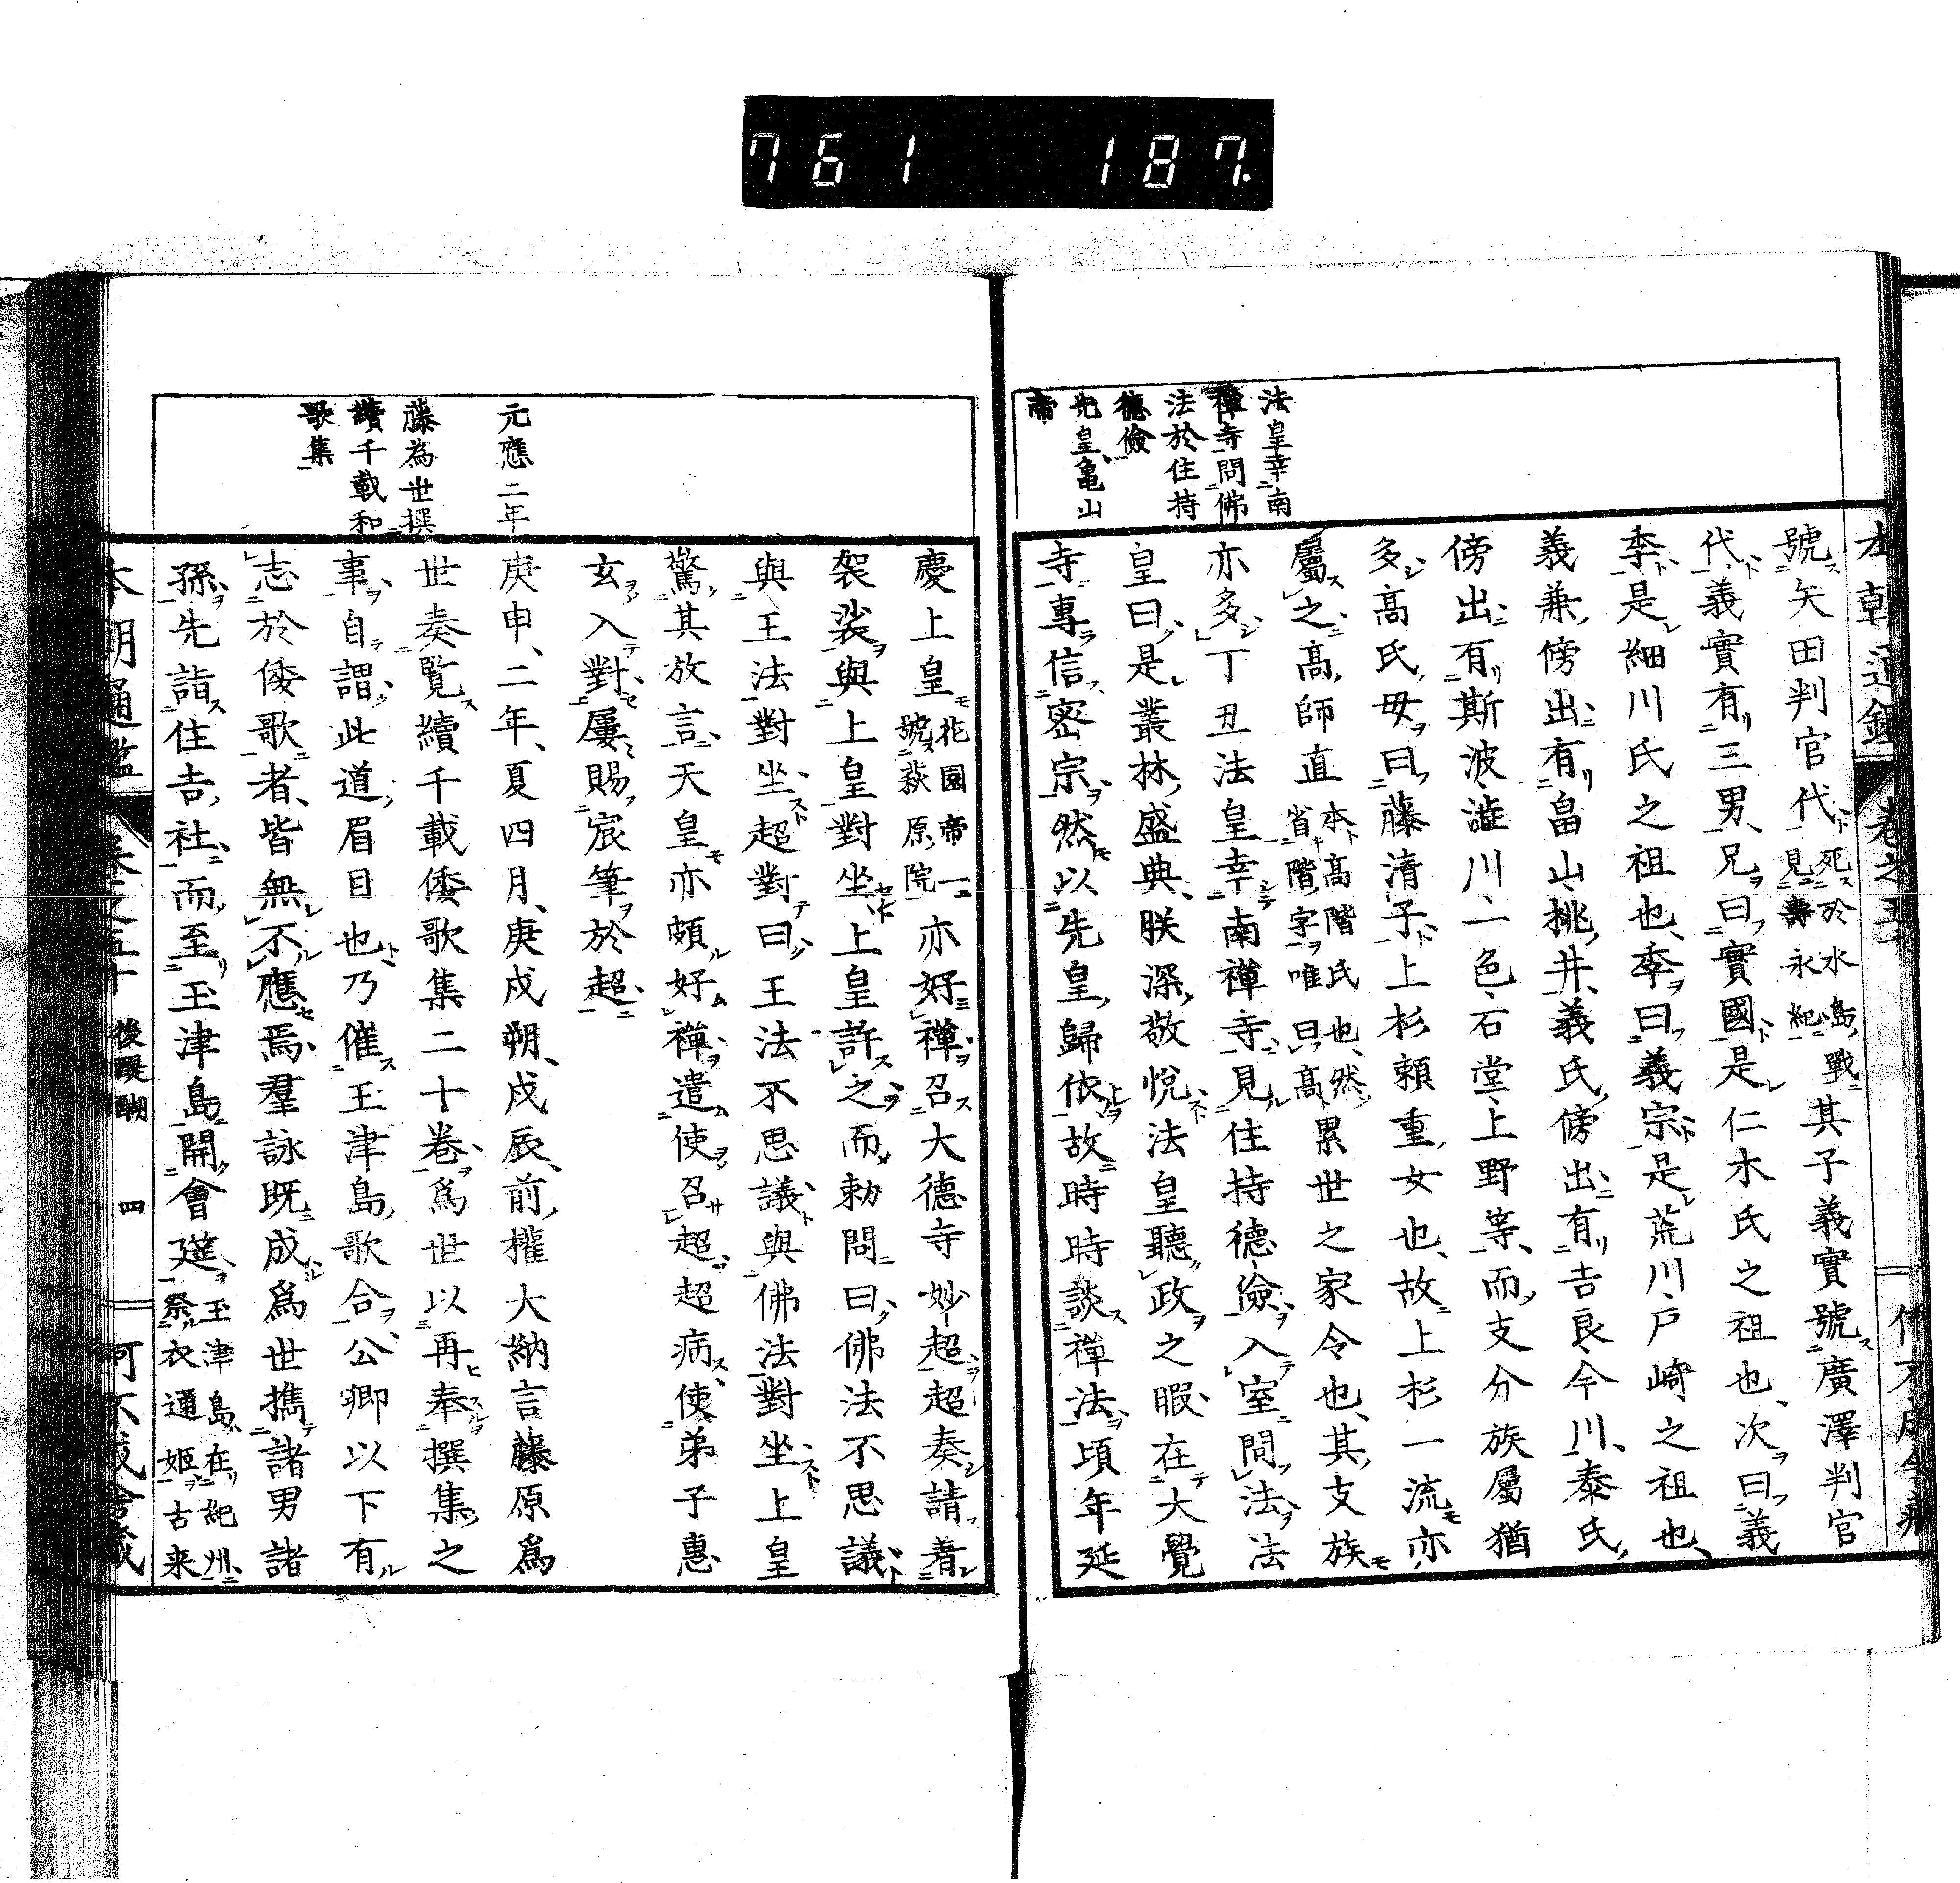 761 187.
法皇幸南
禪寺問佛
法於住持
德儉
先皇亀山
帝
本朝通鑑 卷之五十
號矢田判官代死於水島戰見壽永紀其子義實號廣澤判官
代義實有三男兄曰實國是仁木氏之祖也次曰義
季是細川氏之祖也季曰義宗是荒川戸崎之祖也
義兼傍出有畠山桃井義氏傍出有吉良今川泰氏
傍出有斯波澁川一色石堂上野等而支分族屬猶
多高氏母曰藤清子上杉頼重女也故上杉一流亦
屬之高師直本高階氏也然省階字唯曰高累世之家令也其支族
亦多丁丑法皇幸南禪寺見住持德儉入室問法法
皇曰是叢林盛典朕深敬悅法皇聽政之暇在大覺
寺專信密宗然以先皇歸依故時時談禪法頃年延
元應二年
藤為世撰
續千載和
歌集
慶上皇花園帝號萩原院亦好禪召大德寺妙超超奏請著
袈裟與上皇對坐上皇許之而勅問曰佛法不思議
與王法對坐超對曰王法不思議與佛法對坐上皇
驚其放言天皇亦頗好禪遣使召超超病使弟子惠
玄入對屢賜宸筆於超
庚申二年夏四月庚戌朔戊辰前權大納言藤原爲
世奏覽續千載倭歌集二十卷爲世以再奉撰集之
事自謂此道眉目也乃催玉津島歌合公卿以下有
志於倭歌者皆無不應焉羣詠既成爲世攜諸男諸
孫先詣住吉社而至玉津島開會筵玉津島在紀州祭衣通姫古来
本朝通鑑 卷之五十 後醍醐 四